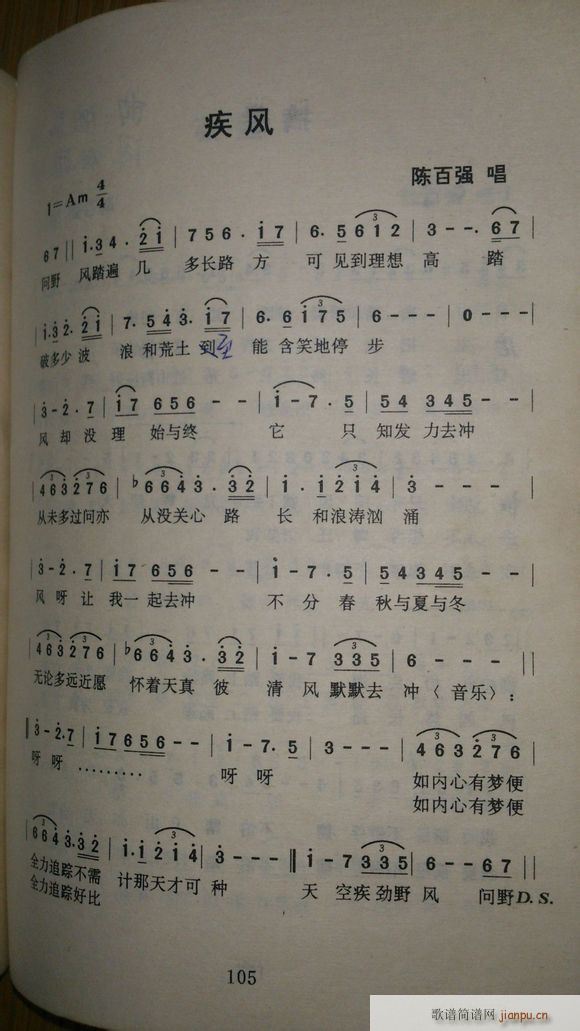 疾风
陈百强 唱
1=Am 4/4
6 7 || i. 3 4. 2 i | 7 5 6. i 7 | 6. 5 6 1 2 | 3 - - . 6 7 |
问野 风踏遍 几 多长路 方 可 见到理想 高 踏
i. 3 2. 2 i | 7. 5 4 3. i 7 | 6. 6 i 7 5 | 6 - - - | 0 - - - |
破多少 波 浪 和荒土 到至 能 含笑地停 步
3 - 2. 7 | i 7 6 5 6 - - | i - 7. 5 | 5 4 3 4 5 - - |
风 却 没 理 始与终 它 只 知发 力去冲
4 6 3 2 7 6 | ♭6 6 4 3. 3 2 | i. i 2 i 4 | 3 - - - |
从未多过问亦 从没关心 路 长 和浪涛汹 涌
3 - 2. 7 | i 7 6 5 6 - - | i - 7. 5 | 5 4 3 4 5 - - |
风 呀 让 我一起去冲 不 分 春 秋与夏与冬
4 6 3 2 7 6 | ♭6 6 4 3. 3 2 | i - 7 3 3 5 | 6 - - - ||
无论多远近愿 怀着天真 彼 清 风 默默去 冲〈 音乐〉:
|| 3 - 2. 7 | i 7 6 5 6 - - | i - 7. 5 | 3 - - - | 4 6 3 2 7 6 |
呀 呀 ……… 呀 呀 如内心有梦便
如内心有梦便
6 6 4 3. 3 2 | i. i 2 i 4 | 3 - - - || i - 7 3 3 5 | 6 - - 6 7 ||
全力追踪不需 计那天才可 种 天 空疾劲野 风 问野D.S.
全力追踪好比
105
歌谱简谱网
jianpu.cn